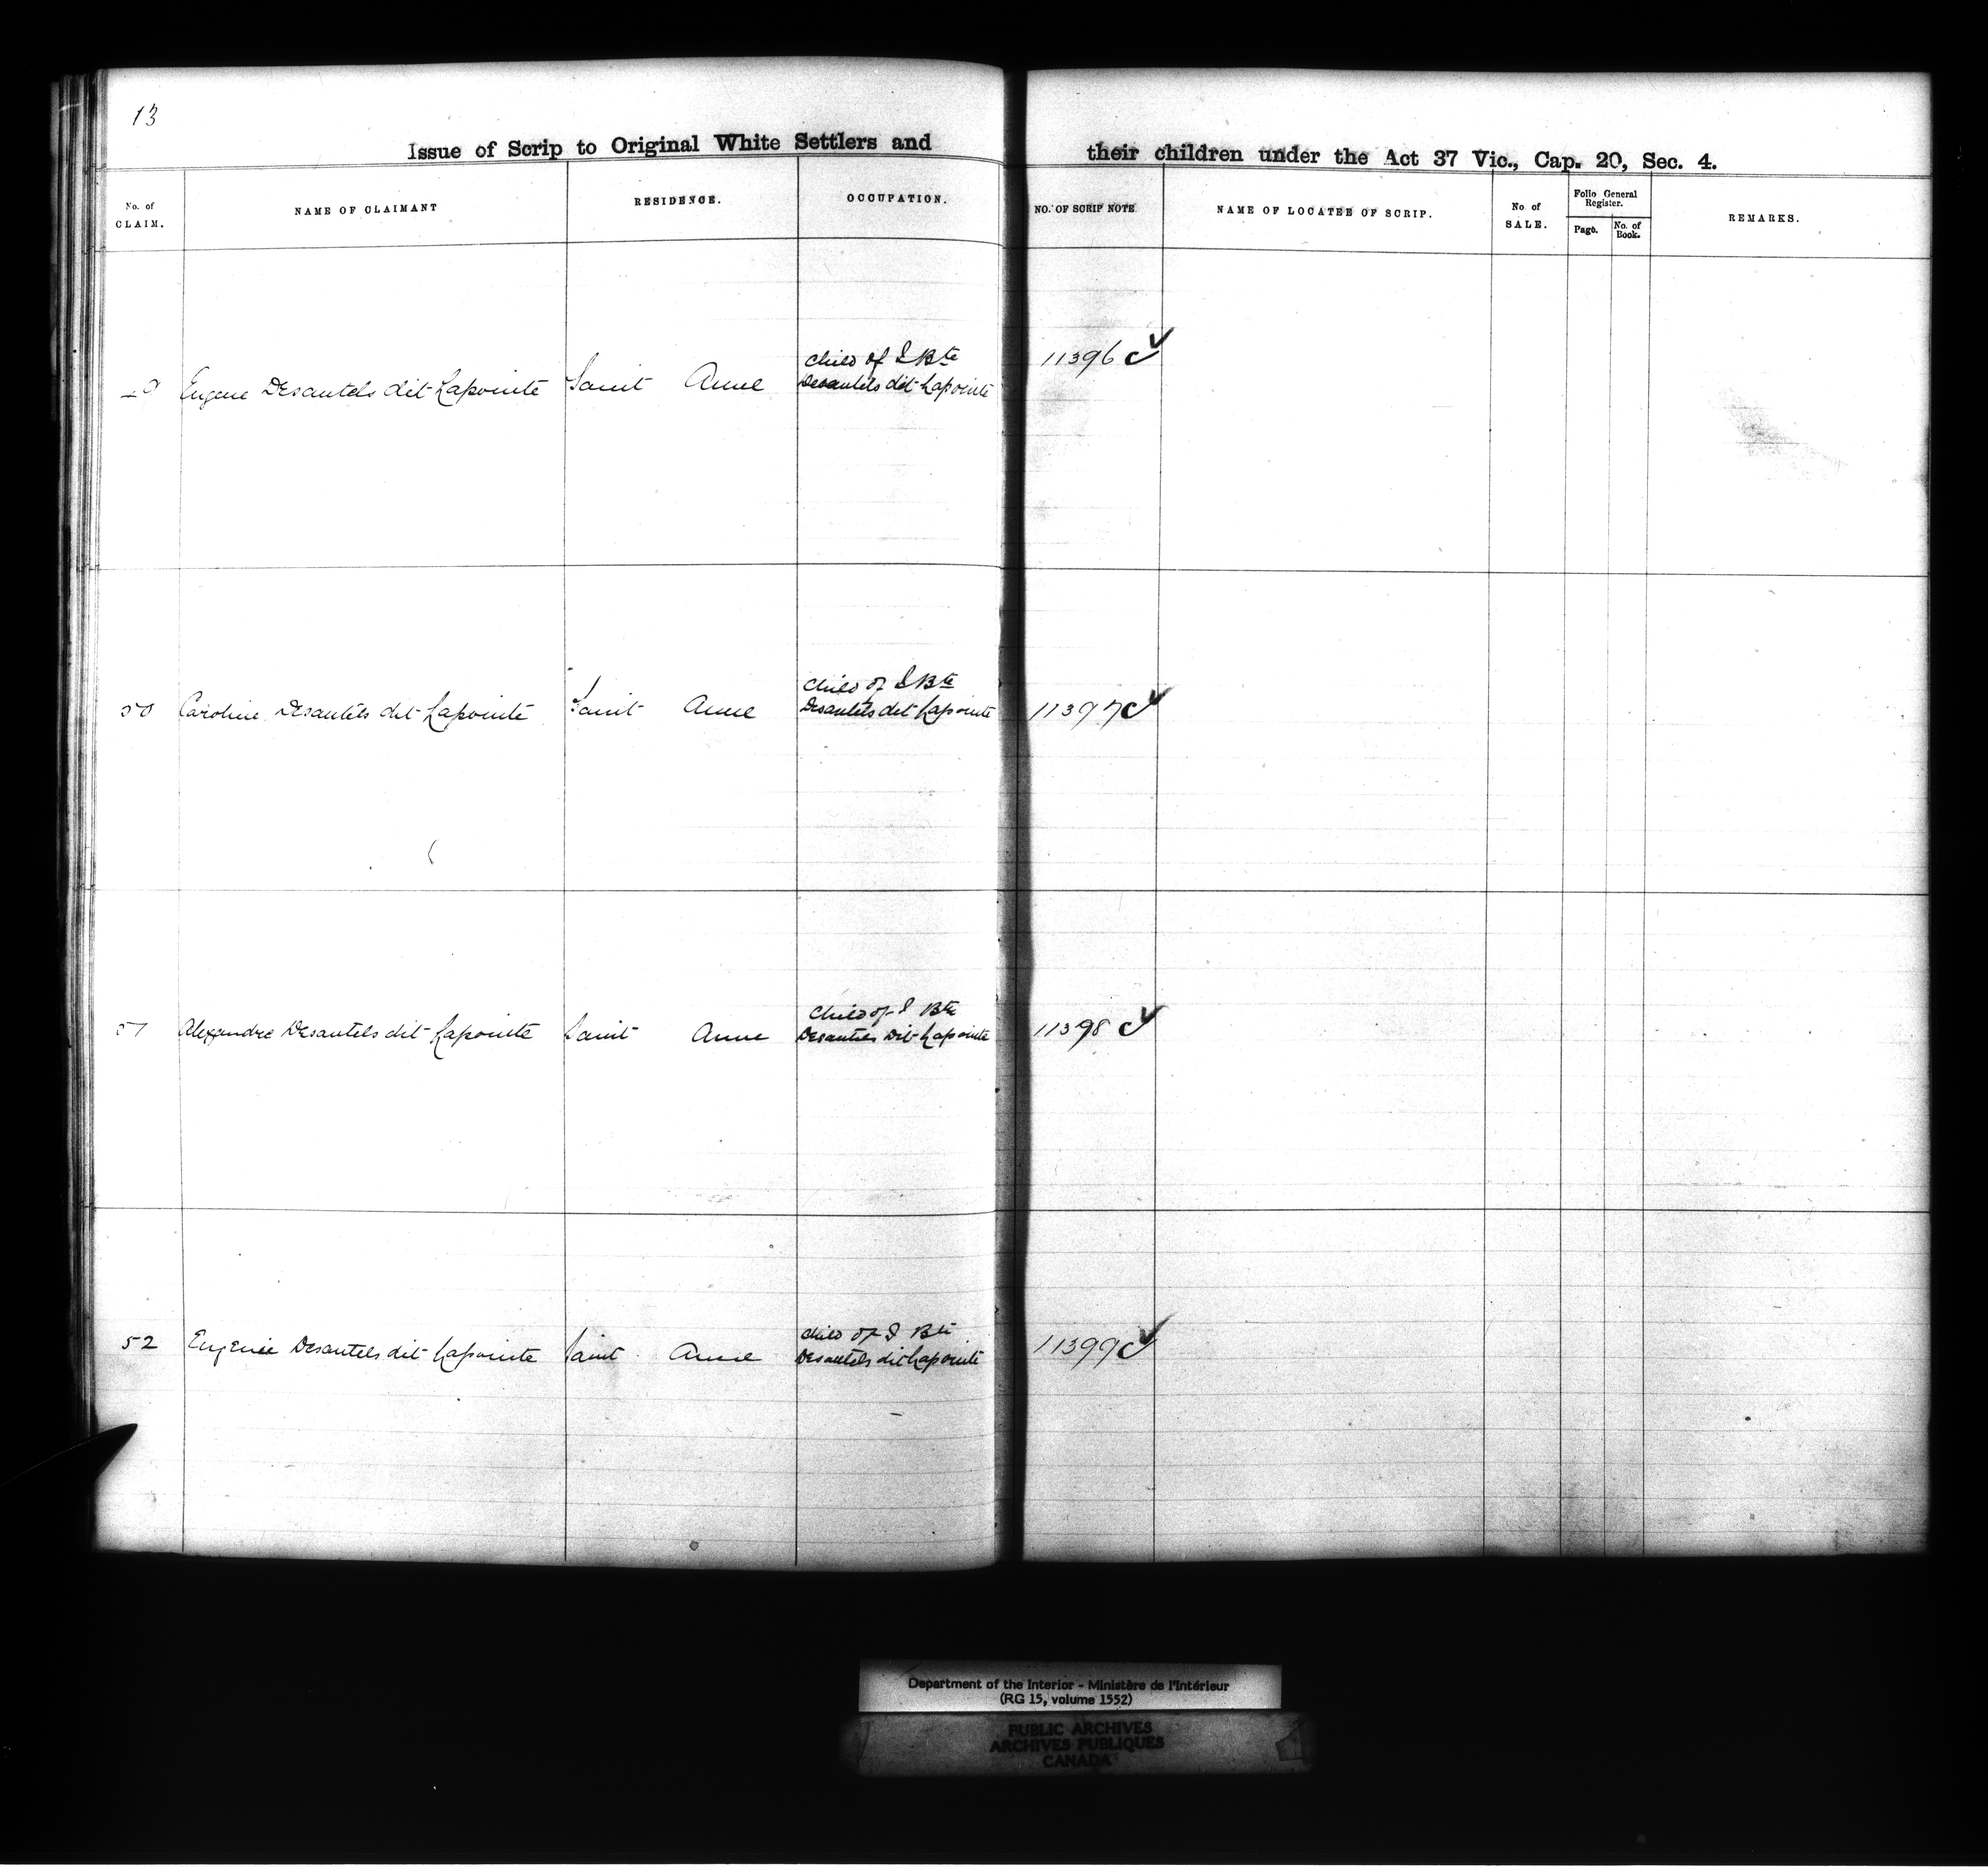 13
Issue of Scrip to Original White Settlers and their children under the Act 37 Vic., Cap. 20, Sec. 4.
No. of CLAIM. NAME OF CLAIMANT RESIDENCE. OCCUPATION. NO. OF SCRIP NOTE NAME OF LOCATEE OF SCRIP. No. of SALE. Folio General Register. Page. No. of Book. REMARKS.
Child of J Bte
Eugene Desautels dit Lapointe Saint Anne Desautels dit Lapointe 11396 C
Child of J Bte
50 Caroline Desautels dit Lapointe Saint Anne Desautels dit Lapointe 11397 C
Child of J Bte
51 Alexandre Desautels dit Lapointe Saint Anne Desautels Dit Lapointe 11398 C
Child of J Bte
52 Eugenie Desautels dit Lapointe Saint Anne Desautels dit Lapointe 11399 C
Department of the Interior - Ministère de l'Intérieur
(RG 15, volume 1552)
PUBLIC ARCHIVES
ARCHIVES PUBLIQUES
CANADA